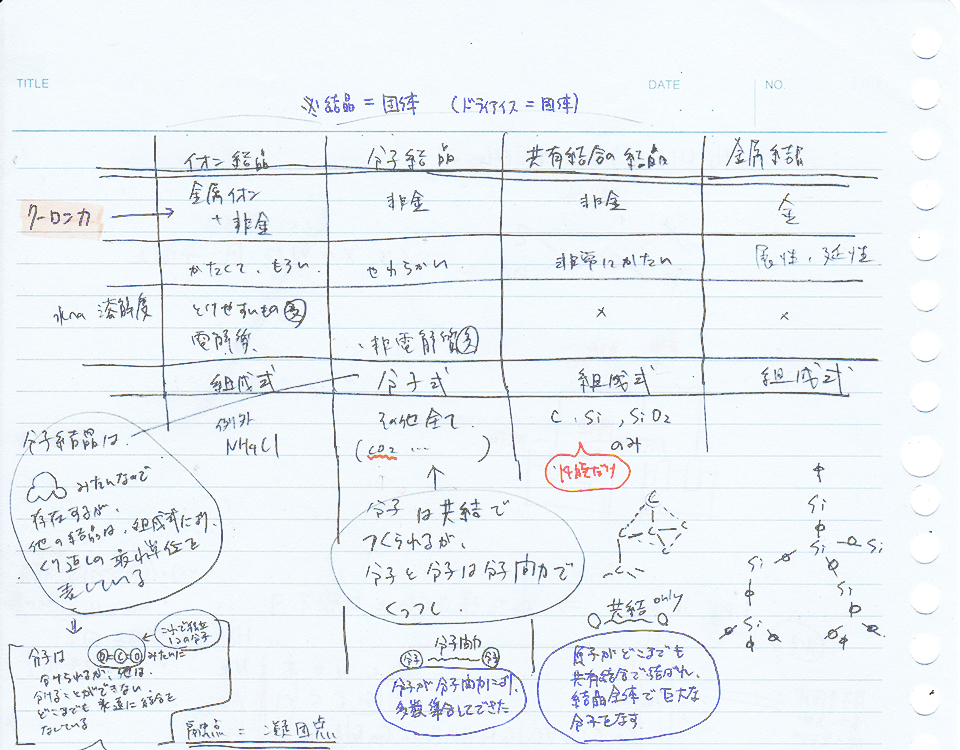 TITLE
DATE
NO.
※結晶 = 固体 (ドライアイス = 固体)
イオン結晶 分子結晶 共有結合の結晶 金属結晶
クーロン力 → 金属イオン 非金 非金 金
+ 非金
かたくて、もろい やわらかい 非常にかたい 展性、延性
水への溶解度 とけやすいもの多 × ×
電解質 ・非電解質多
組成式 分子式 組成式 組成式
例外 その他全て C、Si、SiO2
NH4Cl (CO2 … ) のみ
14族だけ
分子結晶は
みたいなので
存在するが、
他の結晶は、組成式により
くり返しの最小単位を
表している
分子は共結で
つくられるが、
分子と分子は分子間力で
くっつく.
C
C C C
C
Si
Si O Si
Si
共結only
分子は O=C=O みたいに
これで独立
1つの分子
分けられるが、他は、
分けることができない.
どこまでも永遠に結合を
なしている
分子間力
分子 分子
分子が分子間力により、
多数集合してできた
原子がどこまでも
共有結合で結ばれ、
結晶全体で巨大な
分子をなす
融点 = 凝固点